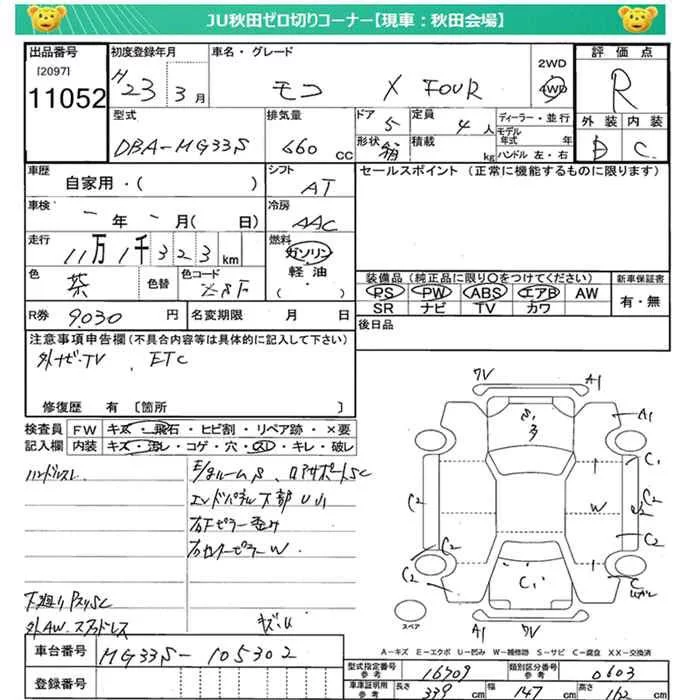 JU秋田ゼロ切りコーナー【現車：秋田会場】
出品番号
[2097]
11052
初度登録年月
H23 3月
車名・グレード
モコ X FOUR
2WD
4WD
評価点
R
外装 内装
D C
型式
DBA-MG33S
排気量
660 CC
ドア
5
形状
箱
定員
4人
積載
kg
ディーラー・並行
モデル
年式 年
ハンドル 左・右
車歴
自家用・( )
シフト
AT
セールスポイント（正常に機能するものに限ります）
車検
年 月( 日)
冷房
AAC
走行
11万1千323km
燃料
ガソリン
軽油
( )
色
茶
色替
色コード
R券
9030円
名変期限 月 日
装備品（純正品に限り○をつけてください）
PS PW ABS エアB AW
SR ナビ TV カワ
新車保証書
有・無
後日品
注意事項申告欄（不具合内容等は具体的に記入して下さい）
外ナビ・TV、ETC
修復歴 有〔箇所 〕
検査員
記入欄
FW キズ・飛石・ヒビ割・リペア跡・×要
内装 キズ・汚レ・コゲ・穴・スレ・キレ・破レ
ハンドルスレ
E/gルームS、ロアサポートSC
エンドパネル下部 U小
右Fピラー歪み
右センターピラーW
下廻りPスリSC
外AW
キズ・U
7V
A1
S
3
A1
C1
C2
W
C2
C2
C2
C1
C
A1
7V
スペア
A－キズ E－エクボ U－凹み W－補修跡 S－サビ C－腐食 XX－交換済
車台番号
MG33S-105302
登録番号
型式指定番号
参考
16709
類別区分番号
参考
0603
車庫証明用
参考
長さ
339 cm
幅
147 cm
高さ
162 cm